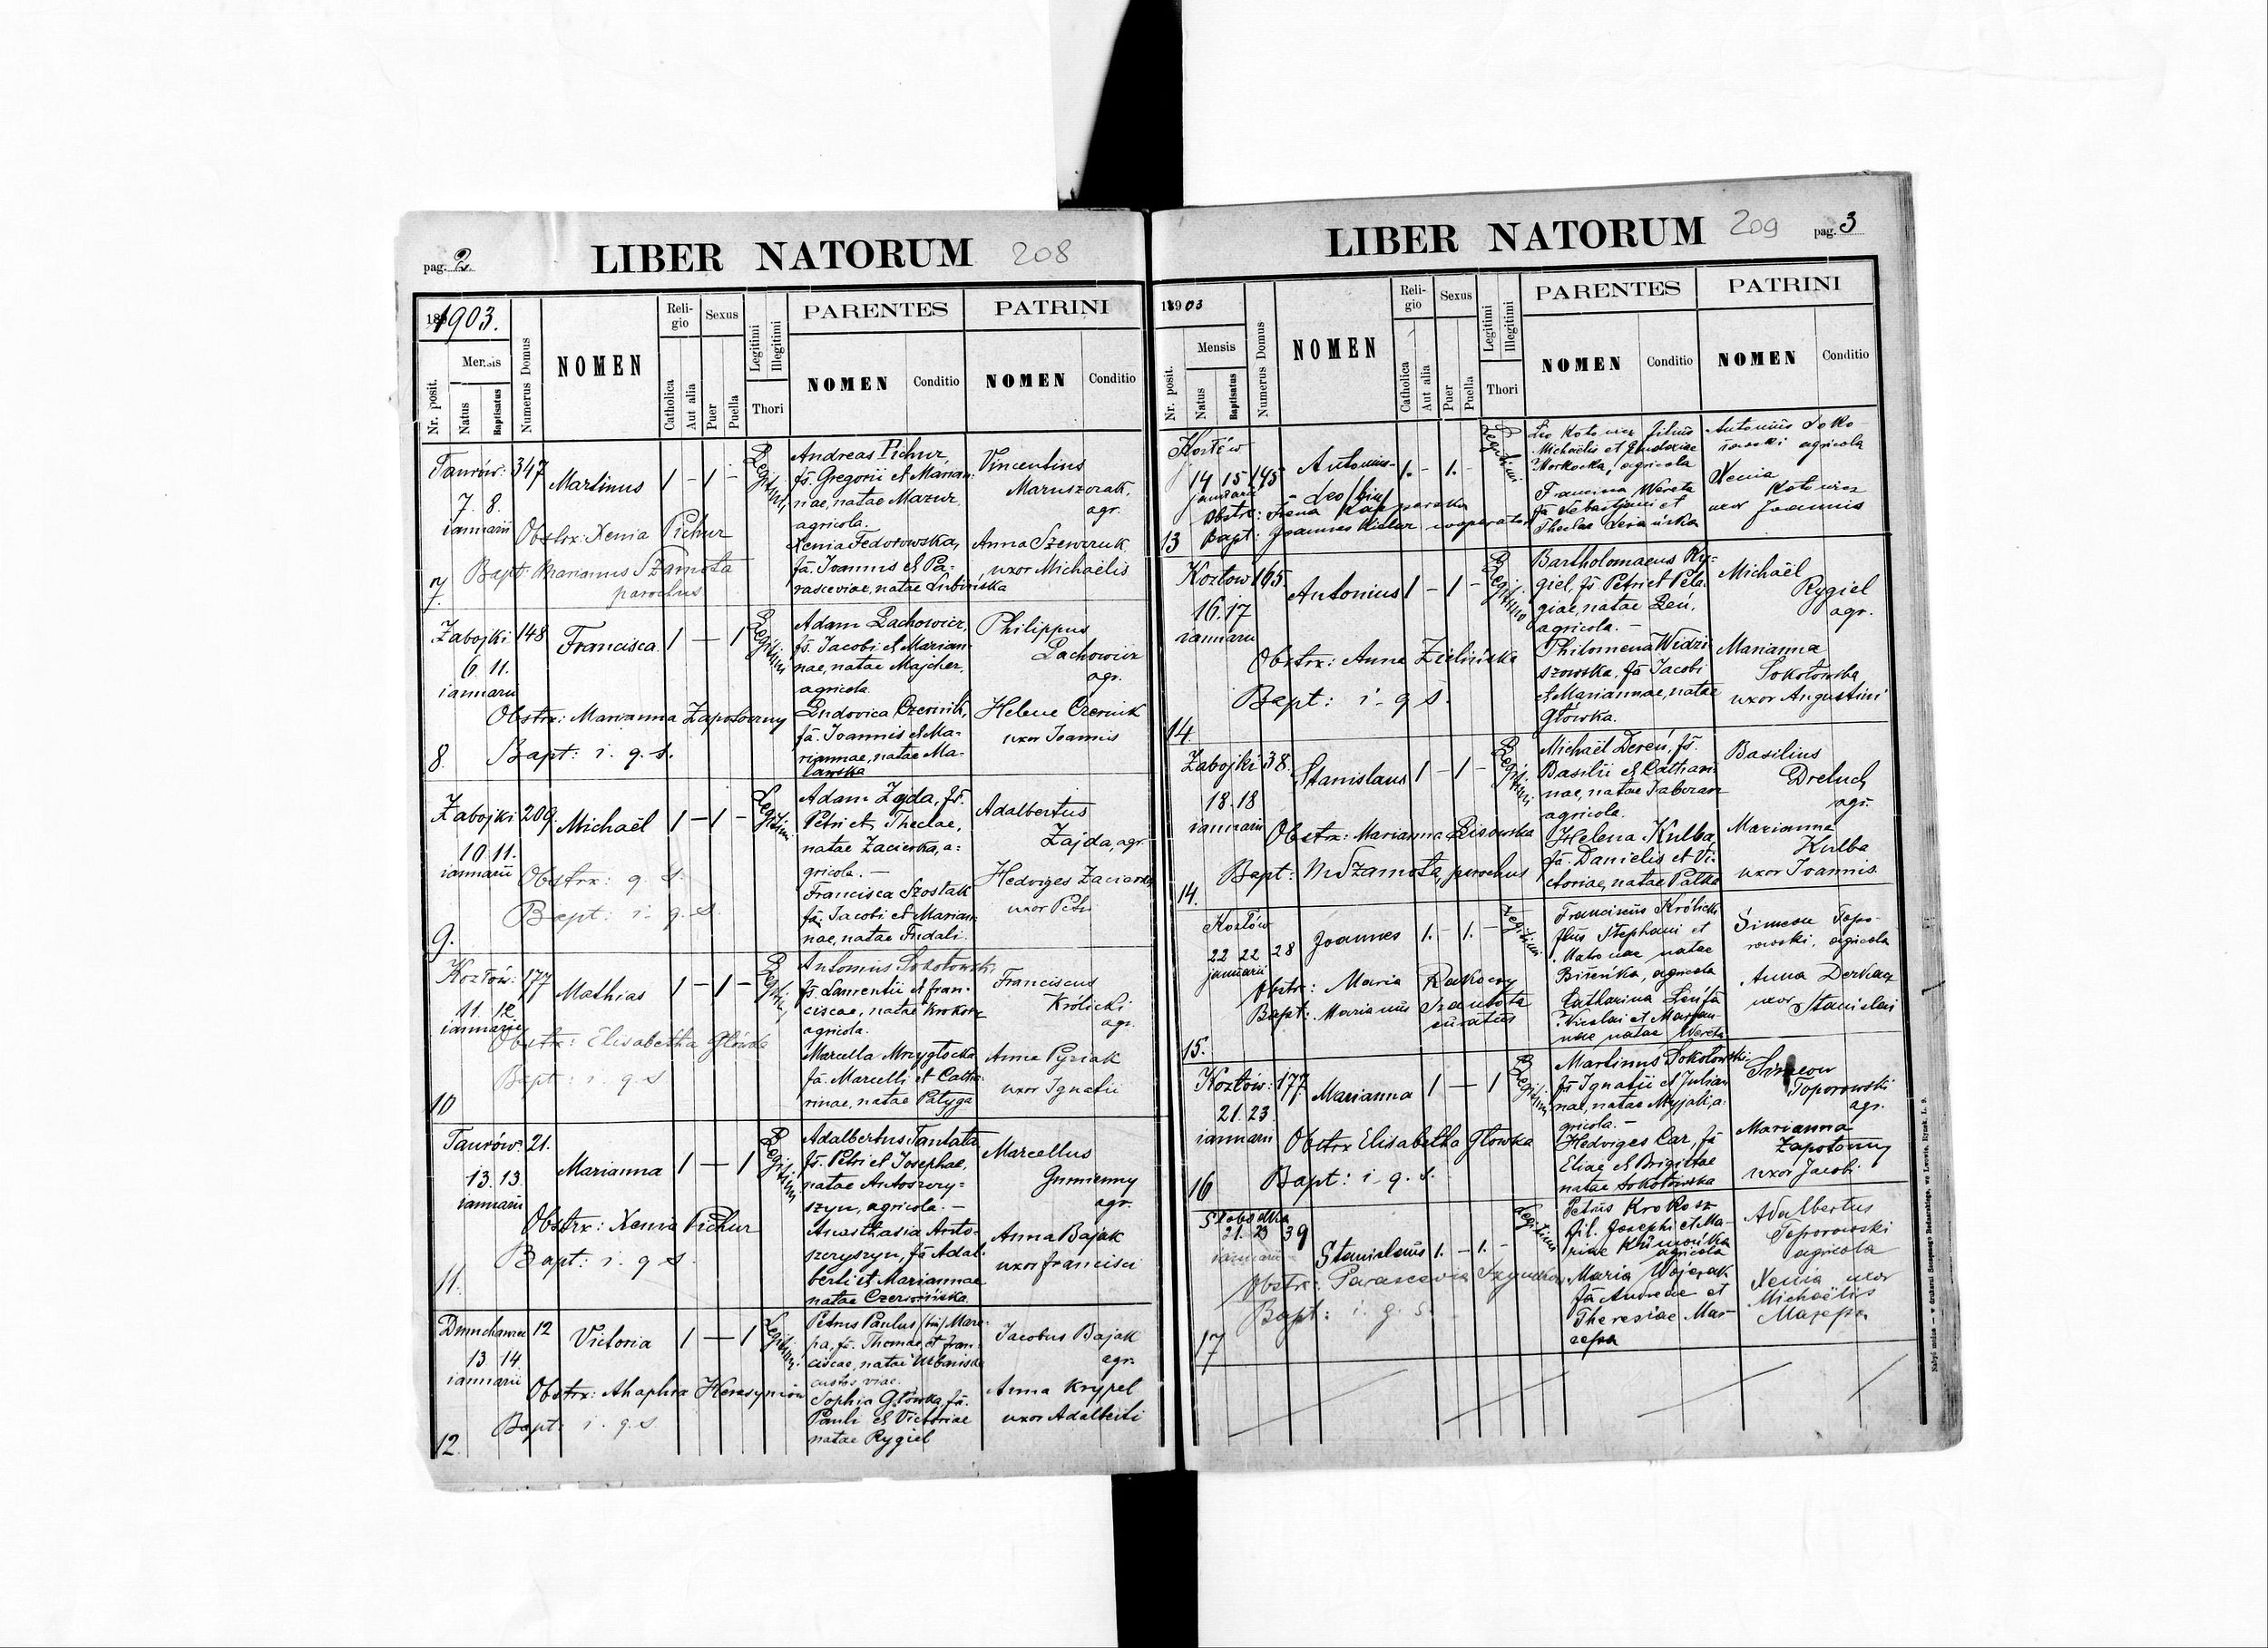 pag. 2.
LIBER NATORUM 208
1903.
Nr. posit.
Mensis
Natus
Baptisatus
Numerus Domus
NOMEN
Religio
Catholica
Aut alia
Sexus
Puer
Puella
Legitimi
Illegitimi
Thori
PARENTES
NOMEN
Conditio
PATRINI
NOMEN
Conditio
Taurów: 347
7. 8.
ianuarii
Martinus
1 - 1 -
Legitimi
Obstrx: Xenia Pichur
Bapt: Marianus Szamota
parochus
7.
Andreas Pichur
fs. Gregorii et Marian-
nae, natae Mazur,
agricola.
Xenia Fedorowska,
fa. Joannis et Pa-
rasceviae, natae Lubinska
Vincentius
Maruszczak,
agr.
Anna Szewczuk
uxor Michaëlis
Zabojki 148
6. 11.
ianuarii
Francisca
1 — 1
Legitimi
Obstrx: Marianna Zapotoczny
8. Bapt: i. q. s.
Adam Lachowicz,
fs. Jacobi et Marian-
nae, natae Majcher,
agricola.
Ludovica Czernik,
fa. Joannis et Ma-
riannae, natae Ma-
lawska
Philippus
Lachowicz
agr.
Helena Czernik
uxor Joannis
Zabojki 209.
10 11.
ianuarii
Michaël
1 - 1 -
Legitimi
Obstrx: q. s.
Bapt: i. q. s.
9.
Adam Zajda, fs.
Petri et Theclae,
natae Zacierka, a-
gricola. —
Francisca Szostak
fa. Jacobi et Marian-
nae, natae Fudali.
Adalbertus
Zajda, agr.
Hedviges Zaciarka
uxor Petri
Kozłów: 177
11. 12.
ianuarii
Mathias
1 - 1 -
Legitimi
Obstrx: Elisabetha Główka
Bapt: i. q. s
10
Antonius Sokołowski,
fs. Laurentii et Fran-
ciscae, natae Krokosz
agricola.
Marcella Mrzygłocka
fa. Marcelli et Catha-
rinae, natae Patyga
Franciscus
Królicki
agr.
Anna Pyziak
uxor Ignatii
Taurów: 21.
13. 13.
ianuarii
Marianna
1 — 1
Legitimi
Obstrx: Xenia Pichur
Bapt: i. q s.
11.
Adalbertus Tantała
fs. Petri et Josephae,
natae Antoszczy-
szyn, agricola. —
Anasthasia Anto-
szczyszyn, fa Adal-
berti et Mariannae
natae Czerwińska.
Marcellus
Gumienny
agr.
Anna Bajak
uxor Francisci
12
13 14.
ianuarii
Victoria
1 — 1
Legitimi
Obstrx: Ahaphia
Bapt: i. q. s
12.
Petrus Paulus (bin) Maze-
pa, fs. Thomae et Fran-
ciscae, natae Urbańska
custos viae.
Sophia Główka, fa.
Pauli et Victoriae
natae Rygiel
Jacobus Bajak
agr.
Anna Krypel
uxor Adalberti
LIBER NATORUM 209
pag. 3
1903
Nr. posit.
Mensis
Natus
Baptisatus
Numerus Domus
NOMEN
Religio
Catholica
Aut alia
Sexus
Puer
Puella
Legitimi
Illegitimi
Thori
PARENTES
NOMEN
Conditio
PATRINI
NOMEN
Conditio
Kozłów
14 15 145
januarii
Antonius-
Leo (bin)
1. - 1. -
Legitimi
Obstr: Irena Kasperska
13 Bapt: Joannes cooperator
Leo Kotowicz filius
Michaëlis et Eudoxiae
Morkocka, agricola
Francisca Wereta
fa Sebastjani et
Theclae
Antonius Soko-
łowski agricola
Xenia
Kotowicz
uxor Joannis
Kozłów 165.
16. 17
ianuarii
Antonius
1 - 1 -
Legitimi
Obstrx: Anna Zielińska
Bapt: i. q s.
14.
Bartholomaeus Ry-
giel, fs Petri et Pela-
giae, natae Leń,
agricola. —
Philomena Widzi-
szowska, fa Jacobi
et Mariannae, natae
Główka.
Michaël
Rygiel
agr.
Marianna
Sokołowska
uxor Augustini
Zabojki 38.
18. 18
ianuarii
Stanislaus
1 - 1 -
Legitimi
Obstrx: Marianna Lisowska
Bapt: M Szamota, parochus
14.
Michaël Dereń, fs.
Basilii et Cathari-
nae, natae
agricola.
Helena Kulba,
fa. Danielis et Vi-
ctoriae, natae Patko
Basilius
Dreluch
agr.
Marianna
Kulba
uxor Joannis
Kozłów
22 22 28
januarii
Joannes
1. - 1. -
Legitimi
Obstr: Maria Rakoczy
Bapt: Marianus Szamota
curatus
15.
Franciscus Królicki
filius Stephani et
Matronae natae
agricola
Catharina Leń fa
Nicolai et Marian-
nae natae Wereta
Simeon Topo-
rowski, agricola
Anna Derkacz
uxor
Stanislai
Kozłów: 177.
21. 23
ianuarii
Marianna
1 — 1
Legitimi
Obstrx Elisabetha Główka
16 Bapt: i. q. s.
Martinus Sokołowski
fs Ignatii et Julian-
nae, natae Myjak, a-
gricola. —
Hedviges Car, fa
Eliae et Brigittae
natae Sokołowska
Simeon
Toporowski
agr.
Marianna
Zapotoczny
uxor Jacobi
Slobodka
21. 23 39
ianuarii
Stanislaus
1. - 1. -
Legitimi
Obstr: Parascevia
Bapt: i. q. s.
17
Petrus Krokosz
fil. Josephi et Ma-
riae
agricola
Maria Wojczak
fa Andreae et
Theresiae Ma-
zepa
Adalbertus
Toporowski
agricola
Xenia uxor
Michaëlis
Mazepa